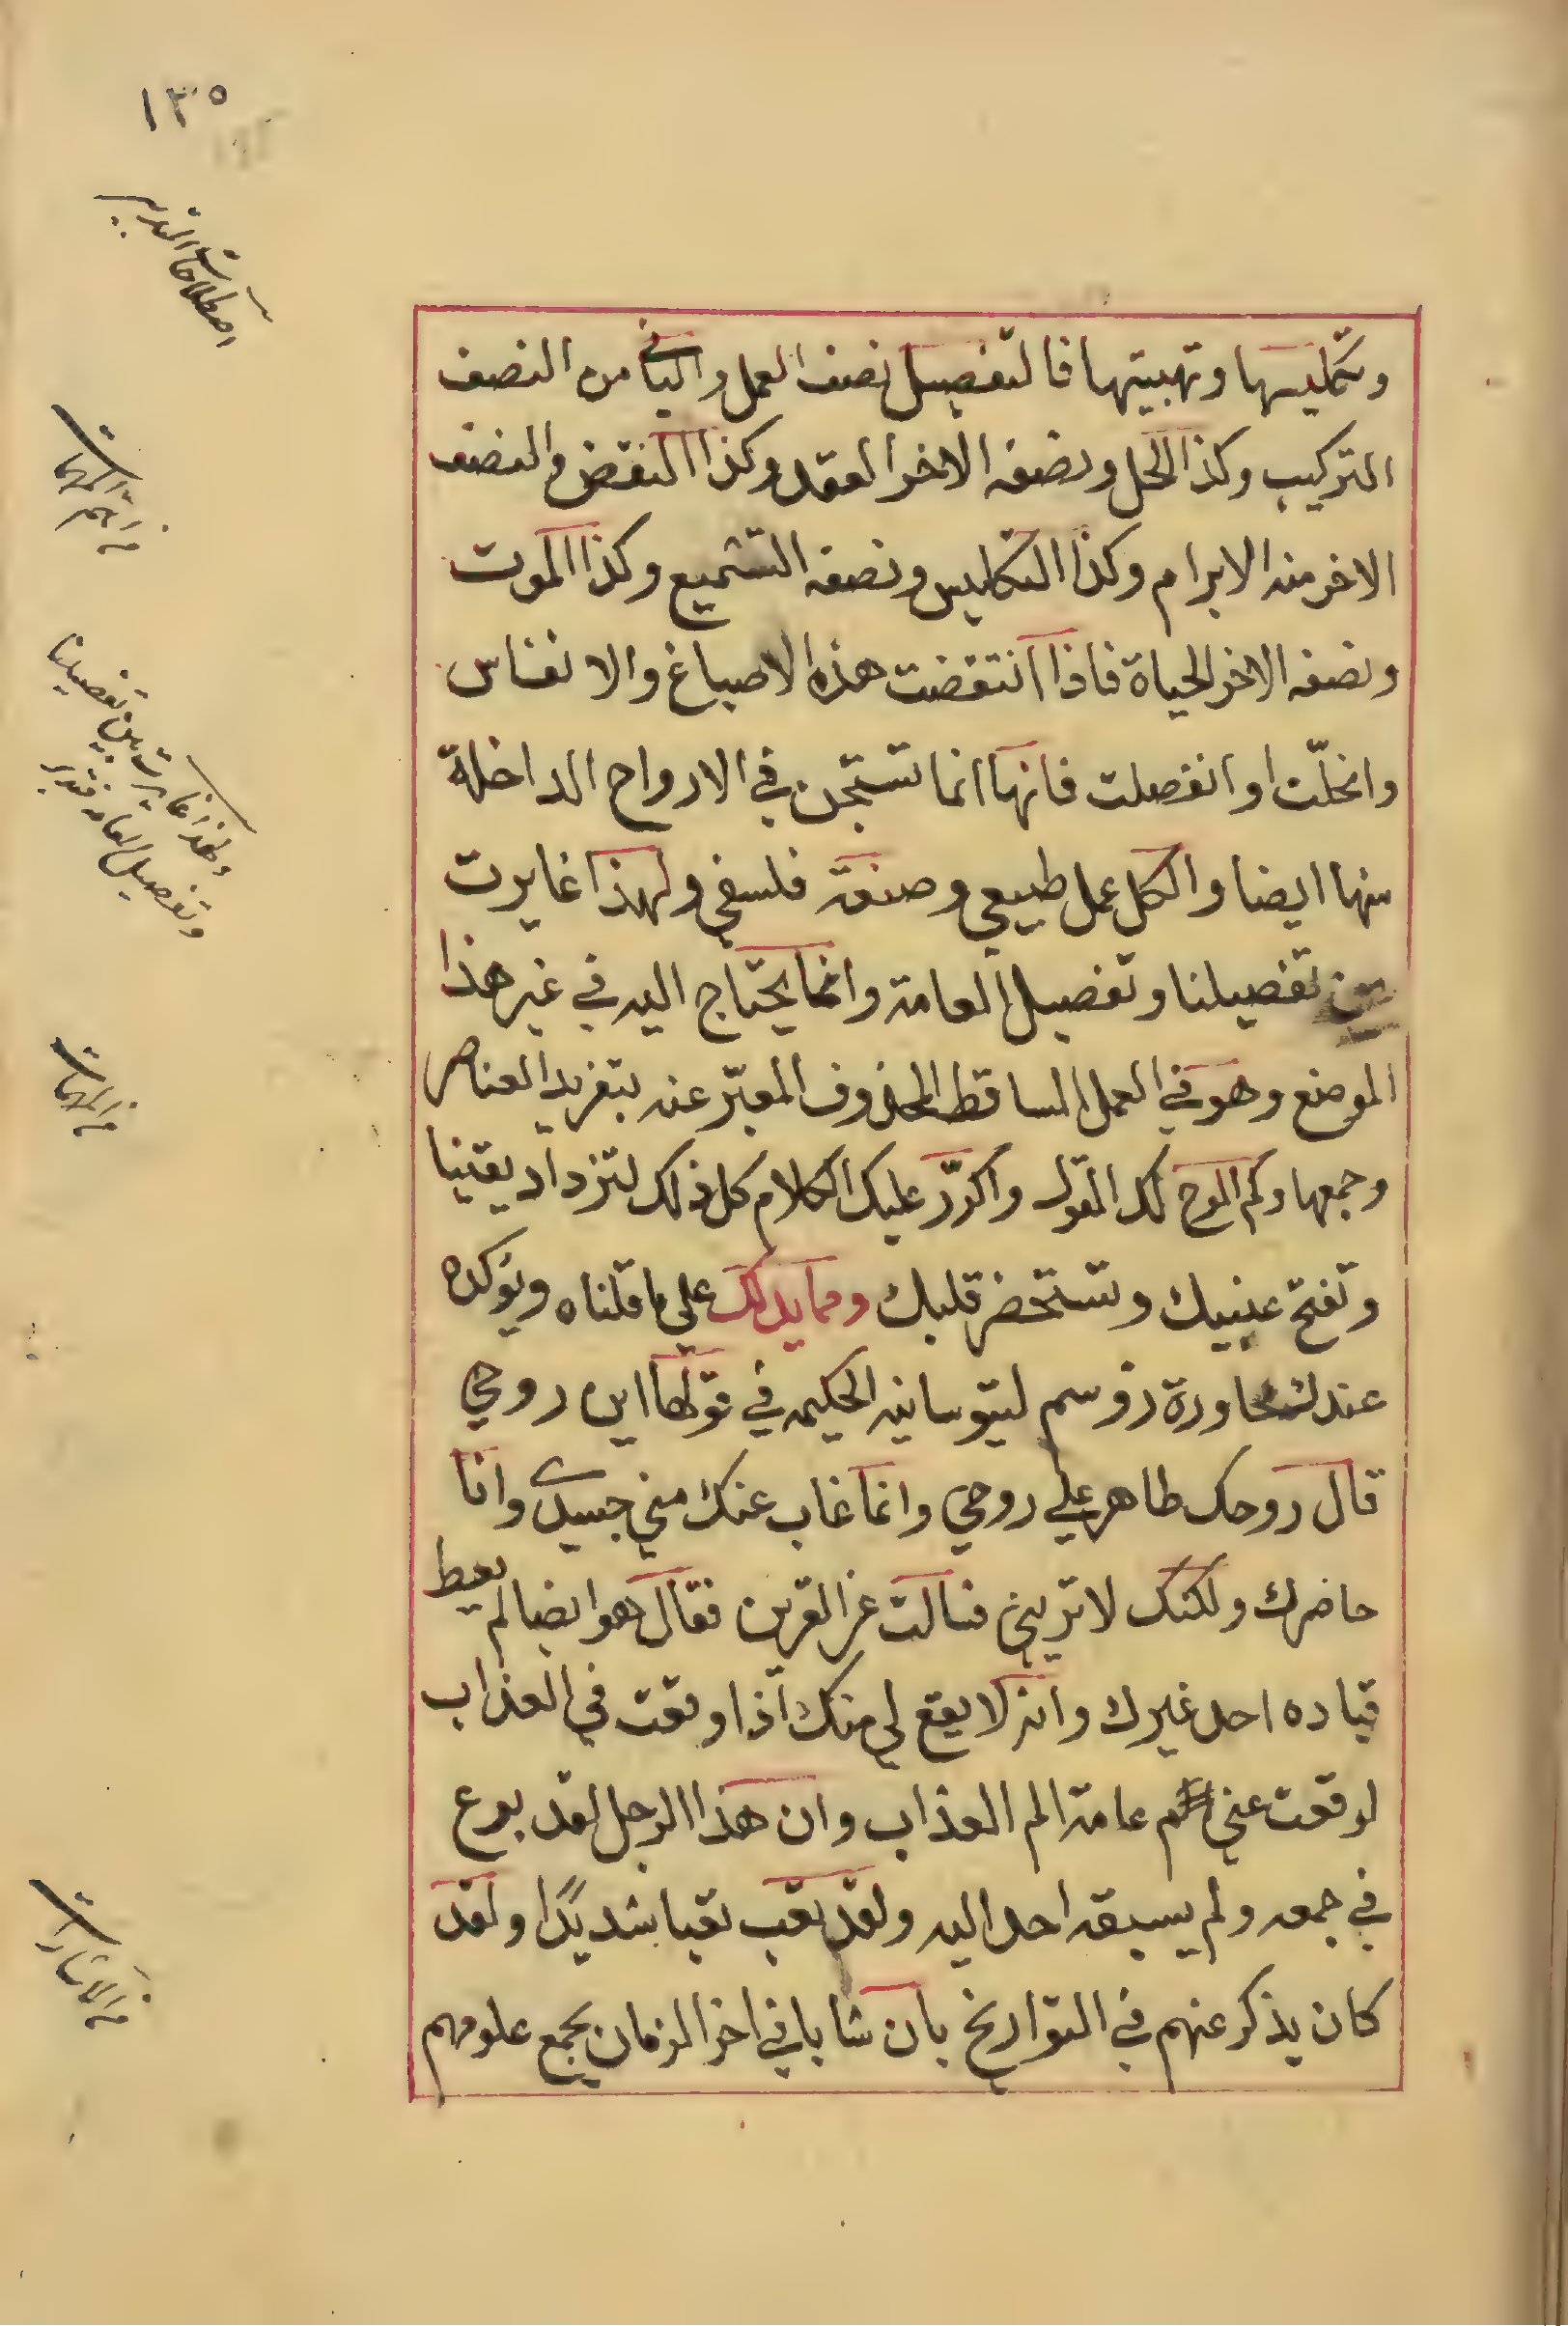 ١٣٥
اصطلاحات التدبير
وتكليسها وتهبيتها فالتفصيل نصف العمل والثاني من النصف
التركيب وكذا الحل ونصفه الاخر العقد وكذا النقض والنصف
الاخر منه الابرام وكذا التكليس ونصفه التشميع وكذا الموت
ونصفه الاخر الحياة فاذا انتقضت هذه الاصباغ والانفاس
وانحلّت او انفصلت فانها انما تستجن في الارواح الداخلة
منها ايضا والكل عمل طبيعي وصنعة فلسفي ولهذا غايرت
بين تفصيلنا وتفصيل العامة وانما يحتاج اليه في غير هذا
الموضع وهو في العمل الساقط المحذوف المعبّر عنه بتفريد العناصر
وجمعها وكم الوح لك القول واكرّر عليك الكلام كل ذلك لتزداد يقينا
وتفتح عينيك وتستحضر قلبك ومما يدلك علي ما قلناه ويؤكده
عندك محاورة زوسم لتيوسانيه الحكيمه في قولها اين روحي
قال روحك طاهر علي روحي وانما غاب عنك مني جسدي وانا
حاضرك ولكنك لا تريني فنالت عز القرين فقال هو ايضا لم يعط
قياده احد غيرك وانه لا يقع لي منك اذا وقعت في العذاب
لوقعت عني عامة الم العذاب وان هذا الرجل لقد برع
في جمعه ولم يسبقه احد اليه ولقد تعب تعبا شديدًا ولقد
كان يذكر عنهم في التواريخ بان شابا في اخر الزمان يجمع علومهم
ولهذا غايرت بين تفصيلنا
وتفصيل العامة فتدبر
من المهمات
من الاشارات